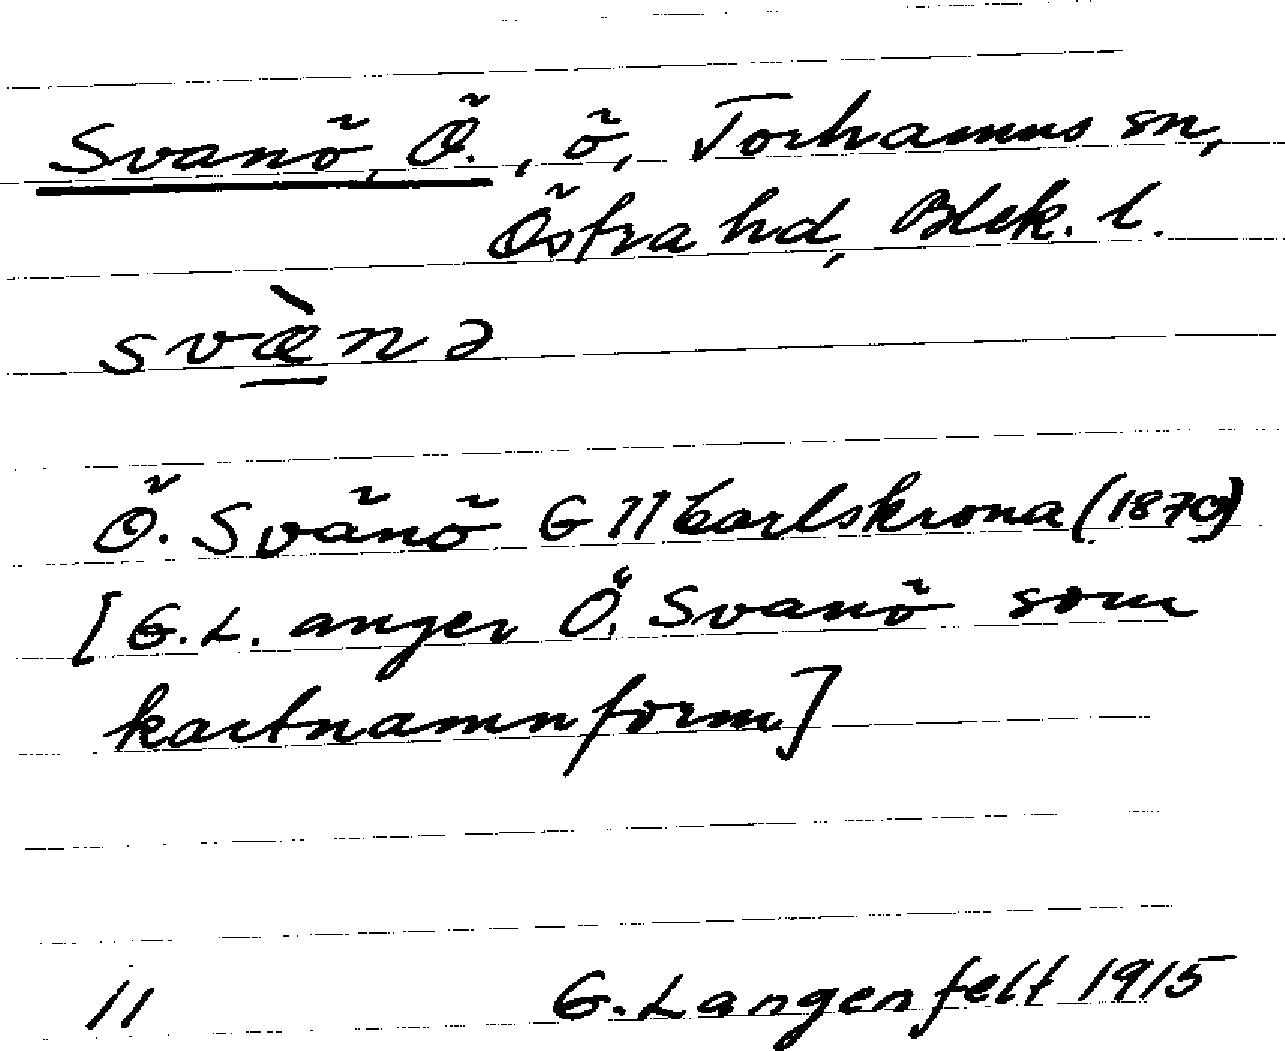 Svanö, Ö., ö, Torhamns sn,
Östra hd, Blek. l.
svæ̀nə
Ö. Svänö G 11 Carlskrona (1870)
[G.L. anger Ö. Svanö som
kartnamnform]
11 G. Langenfelt 1915